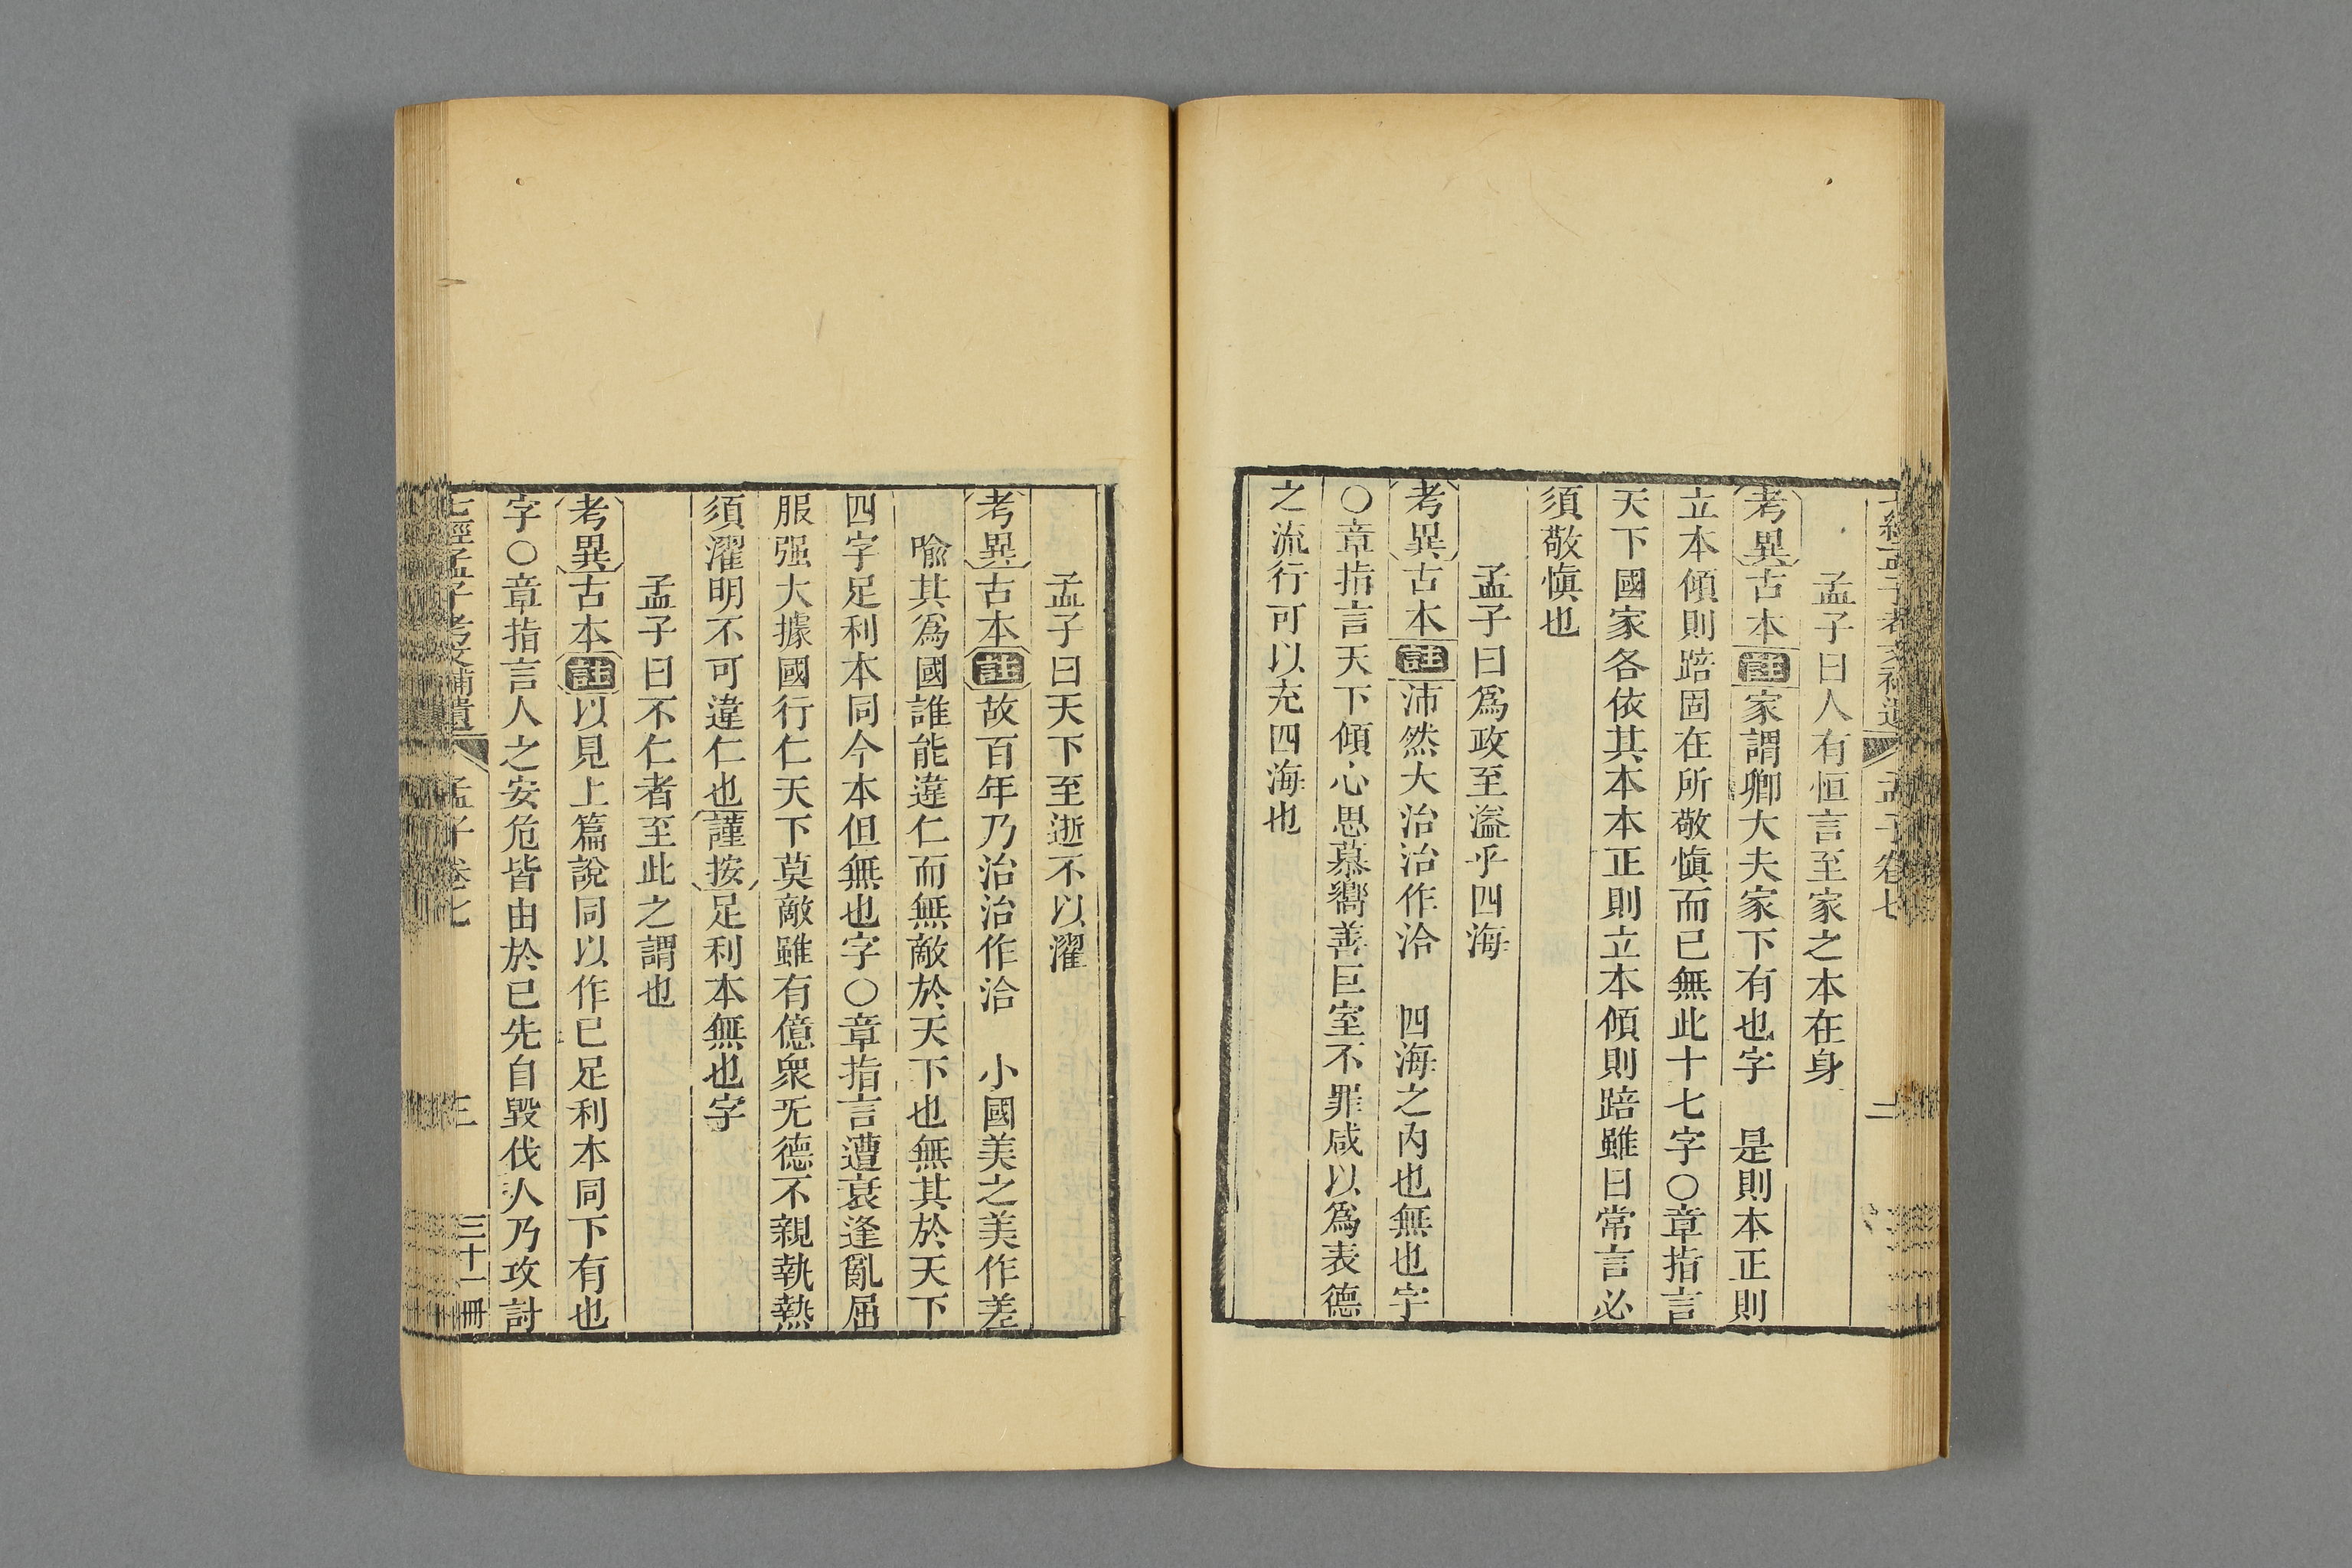 孟子卷七
二
孟子曰人有恒言至家之本在身
考異古本註家謂卿大夫家下有也字　是則本正則
立本傾則踣固在所敬慎而已無此十七字○章指言
天下國家各依其本本正則立本傾則踣雖曰常言必
須敬慎也
孟子曰爲政至溢乎四海
考異古本註沛然大治治作洽　四海之內也無也字
○章指言天下傾心思慕嚮善巨室不罪咸以爲表德
之流行可以充四海也
孟子曰天下至逝不以濯
考異古本註故百年乃治治作洽　小國美之美作差
喩其爲國誰能違仁而無敵於天下也無其於天下
四字足利本同今本但無也字○章指言遭衰逢亂屈
服强大據國行仁天下莫敵雖有億衆旡德不親執熱
須濯明不可違仁也謹按足利本無也字
孟子曰不仁者至此之謂也
考異古本註以見上篇說同以作已足利本同下有也
字○章指言人之安危皆由於已先自毀伐人乃攻討
七經孟子考文補遺　孟子卷七
三
三十一冊